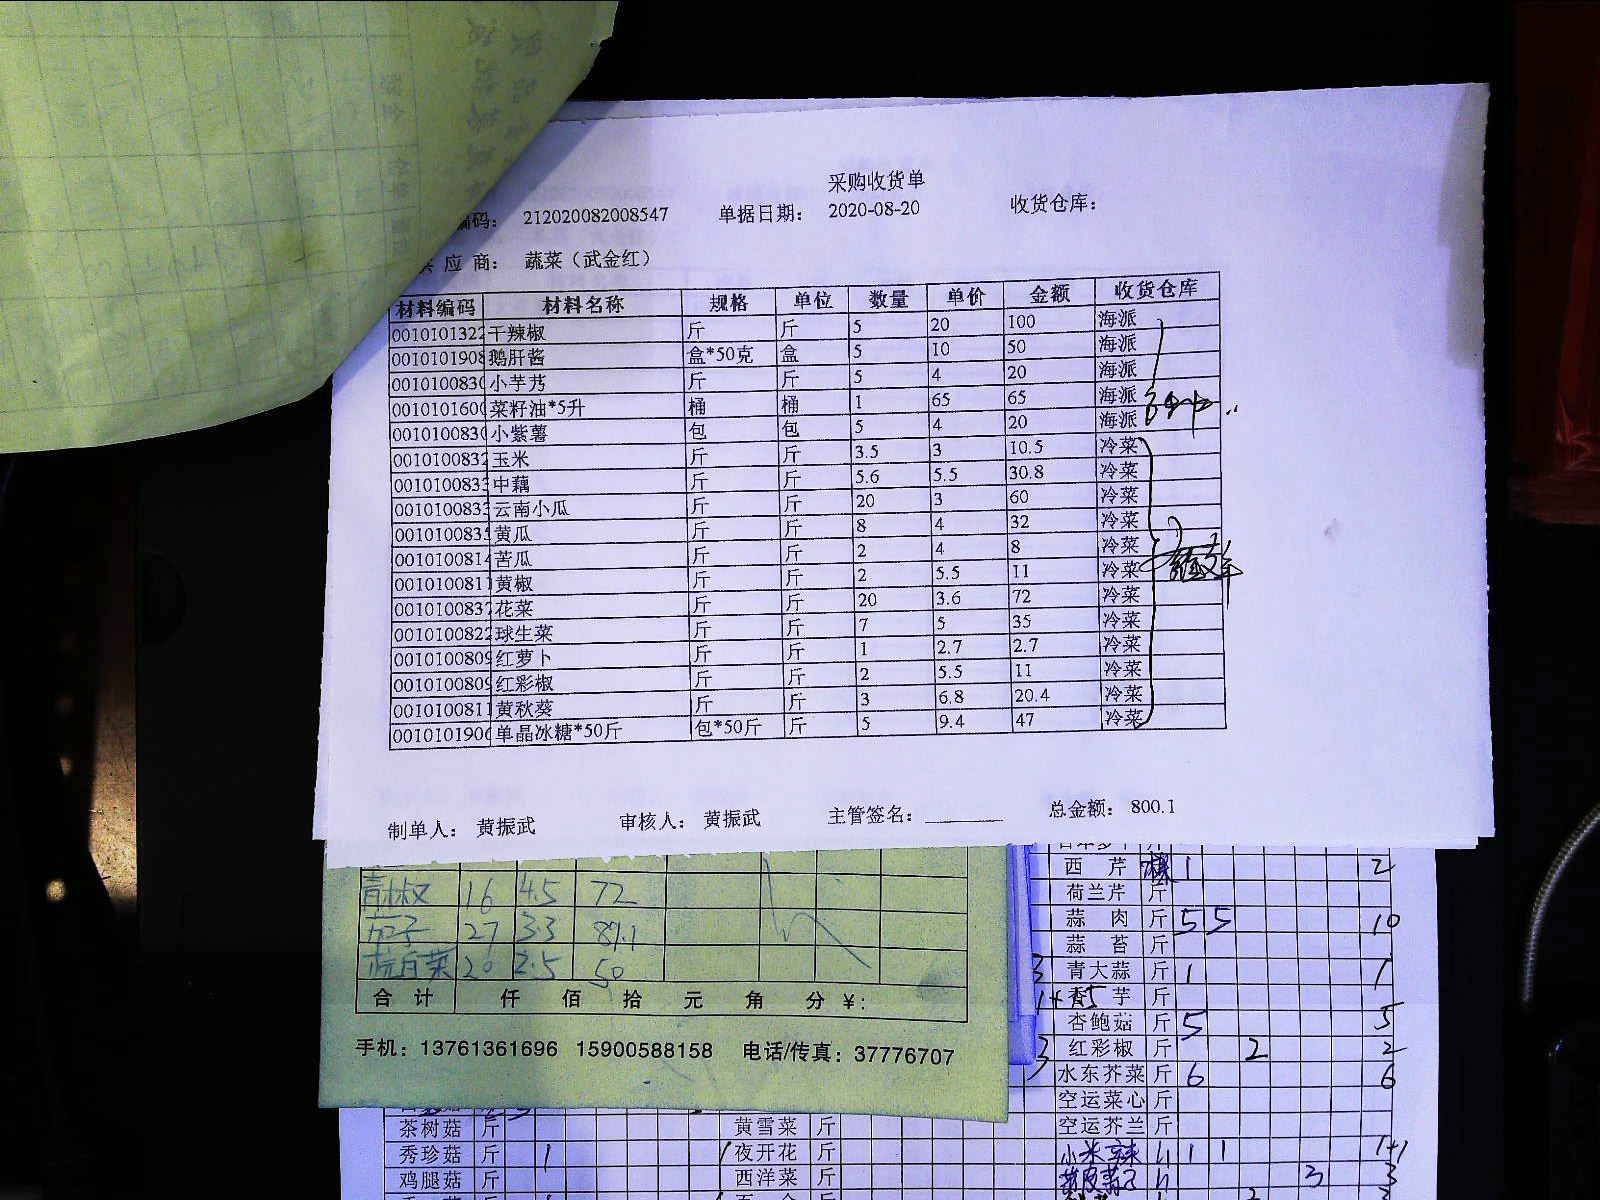 采购收货单
编码： 212020082008547 单据日期： 2020-08-20 收货仓库：
应 商： 蔬菜（武金红）
材料编码 材料名称 规格 单位 数量 单价 金额 收货仓库
0010101322 干辣椒 斤 斤 5 20 100 海派
0010101908 鹅肝酱 盒*50克 盒 5 10 50 海派
001010083 小芋艿 斤 斤 5 4 20 海派
001010160 菜籽油*5升 桶 桶 1 65 65 海派
001010083 小紫薯 包 包 5 4 20 海派
001010083 玉米 斤 斤 3.5 3 10.5 冷菜
001010083 中藕 斤 斤 5.6 5.5 30.8 冷菜
001010083 云南小瓜 斤 斤 20 3 60 冷菜
001010083 黄瓜 斤 斤 8 4 32 冷菜
001010081 苦瓜 斤 斤 2 4 8 冷菜
001010081 黄椒 斤 斤 2 5.5 11 冷菜
001010083 花菜 斤 斤 20 3.6 72 冷菜
001010082 球生菜 斤 斤 7 5 35 冷菜
001010080 红萝卜 斤 斤 1 2.7 2.7 冷菜
001010080 红彩椒 斤 斤 2 5.5 11 冷菜
001010081 黄秋葵 斤 斤 3 6.8 20.4 冷菜
001010190 单晶冰糖*50斤 包*50斤 斤 5 9.4 47 冷菜
制单人： 黄振武 审核人： 黄振武 主管签名： 总金额： 800.1
青椒 16 4.5 72
茄子 27 3.3 89.1
杭白菜 20 2.5 50
合 计 仟 佰 拾 元 角 分 ￥:
手机：13761361696 15900588158 电话/传真：37776707
西 芹 1 2
荷兰芹 斤
蒜 肉 斤 5 5 10
蒜 苔 斤
3 青大蒜 斤 1 1
香 芋 斤
杏鲍菇 斤 5 5
3 红彩椒 斤 2 2
水东芥菜 斤 6 6
空运菜心 斤
空运芥兰 斤
小米辣 1 1 1+1
3 3
茶树菇 斤 黄雪菜 斤
秀珍菇 斤 1 夜开花 斤
鸡腿菇 斤 西洋菜 斤